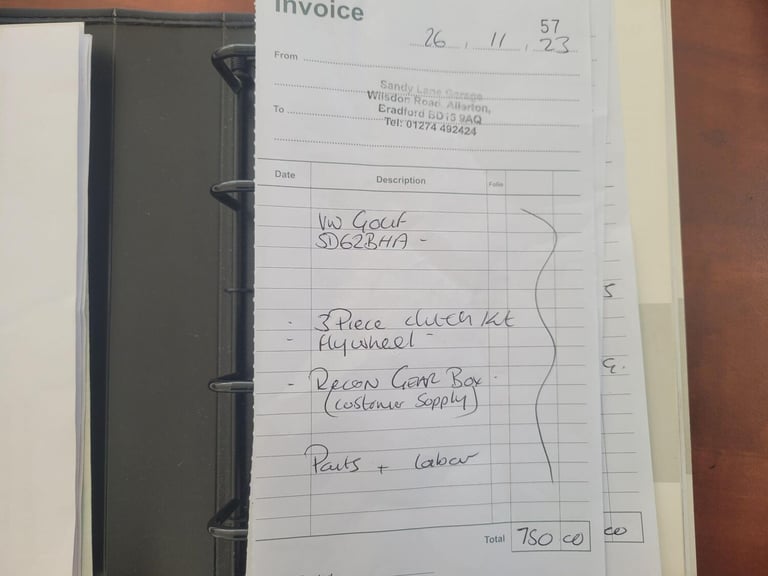 Invoice
57
26 . 11 . 23
From
Sandy Lane Garage
Wilsdon Road, Allerton,
To
Bradford BD15 9AQ
Tel: 01274 492424
Date Description Folio
VW Golf
SD62BHA -
- 3 Piece clutch kit
- flywheel -
- Recon Gear Box
(customer supply)
Parts + labour
Total 750 00
S
G.
00